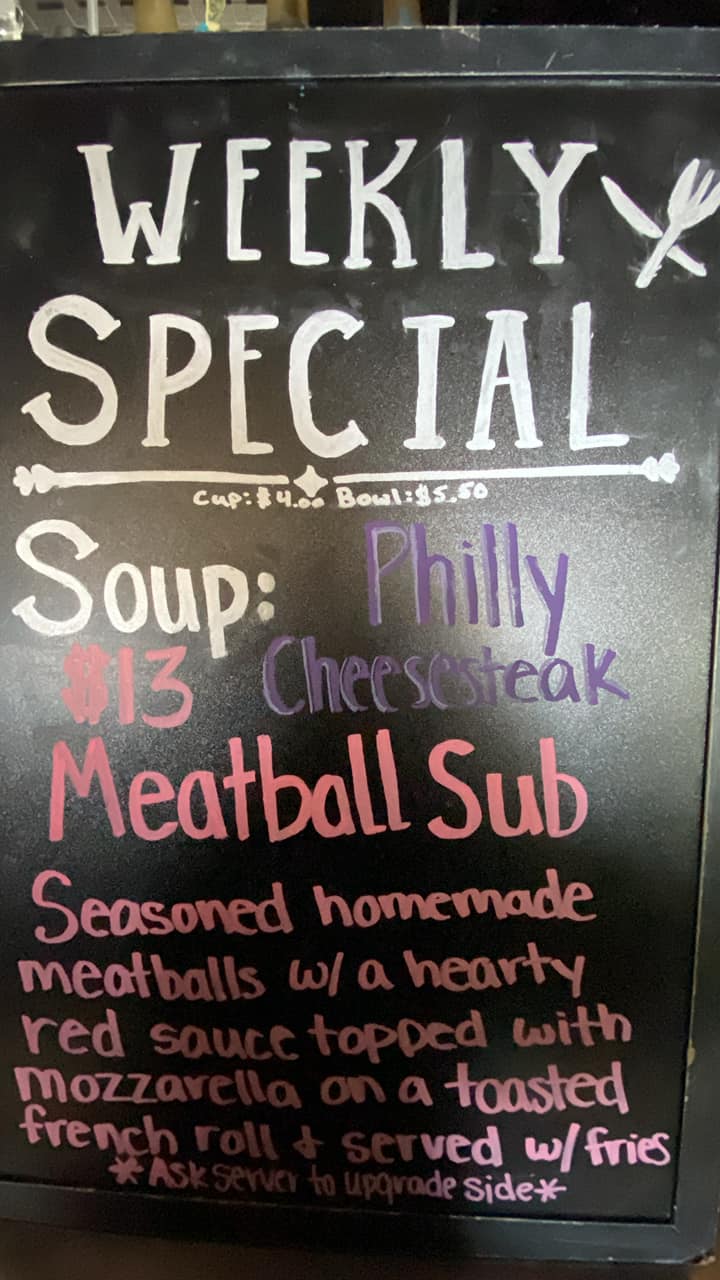 WEEKLY
SPECIAL
Cup:$4.00 Bowl:$5.50
Soup: Philly
$13 Cheesesteak
Meatball Sub
Seasoned homemade
meatballs w/ a hearty
red sauce topped with
mozzarella on a toasted
french roll & served w/fries
*Ask server to upgrade side*